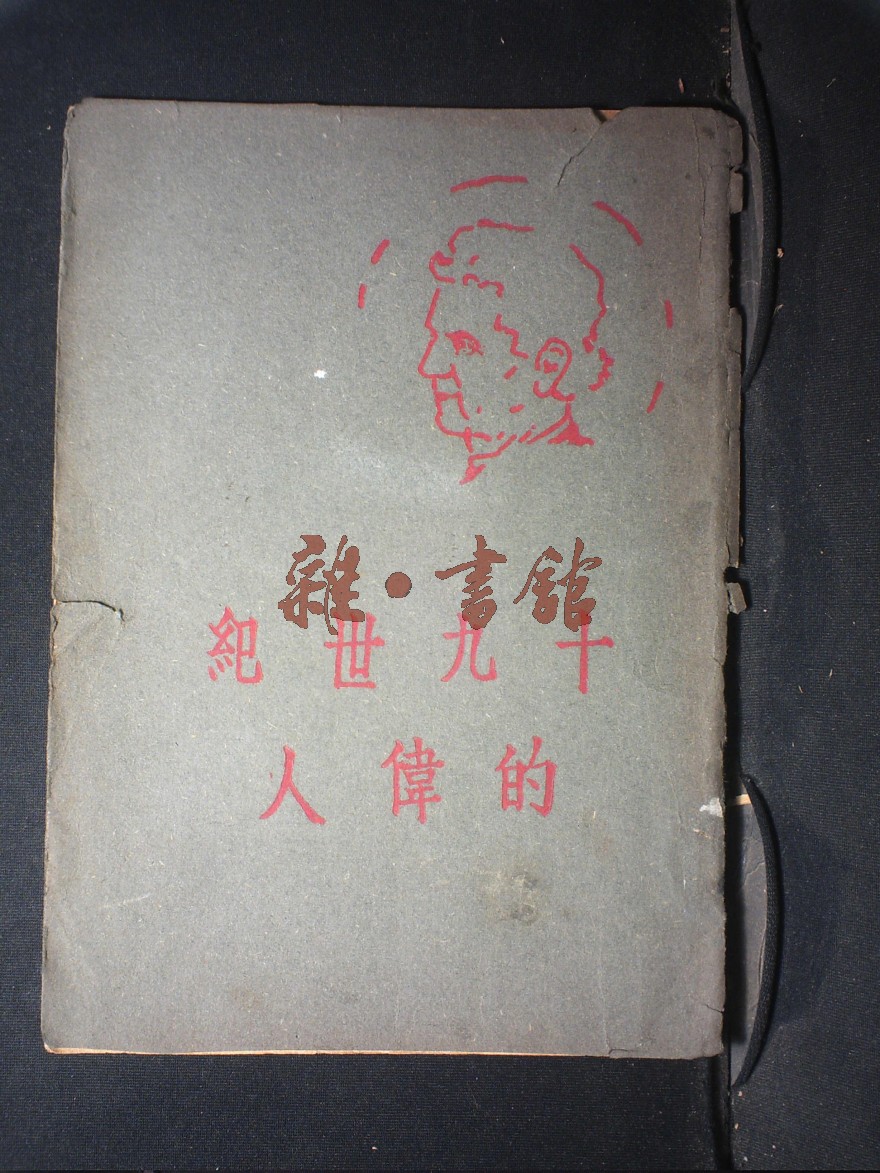 雜·書館
十九世紀
的偉人